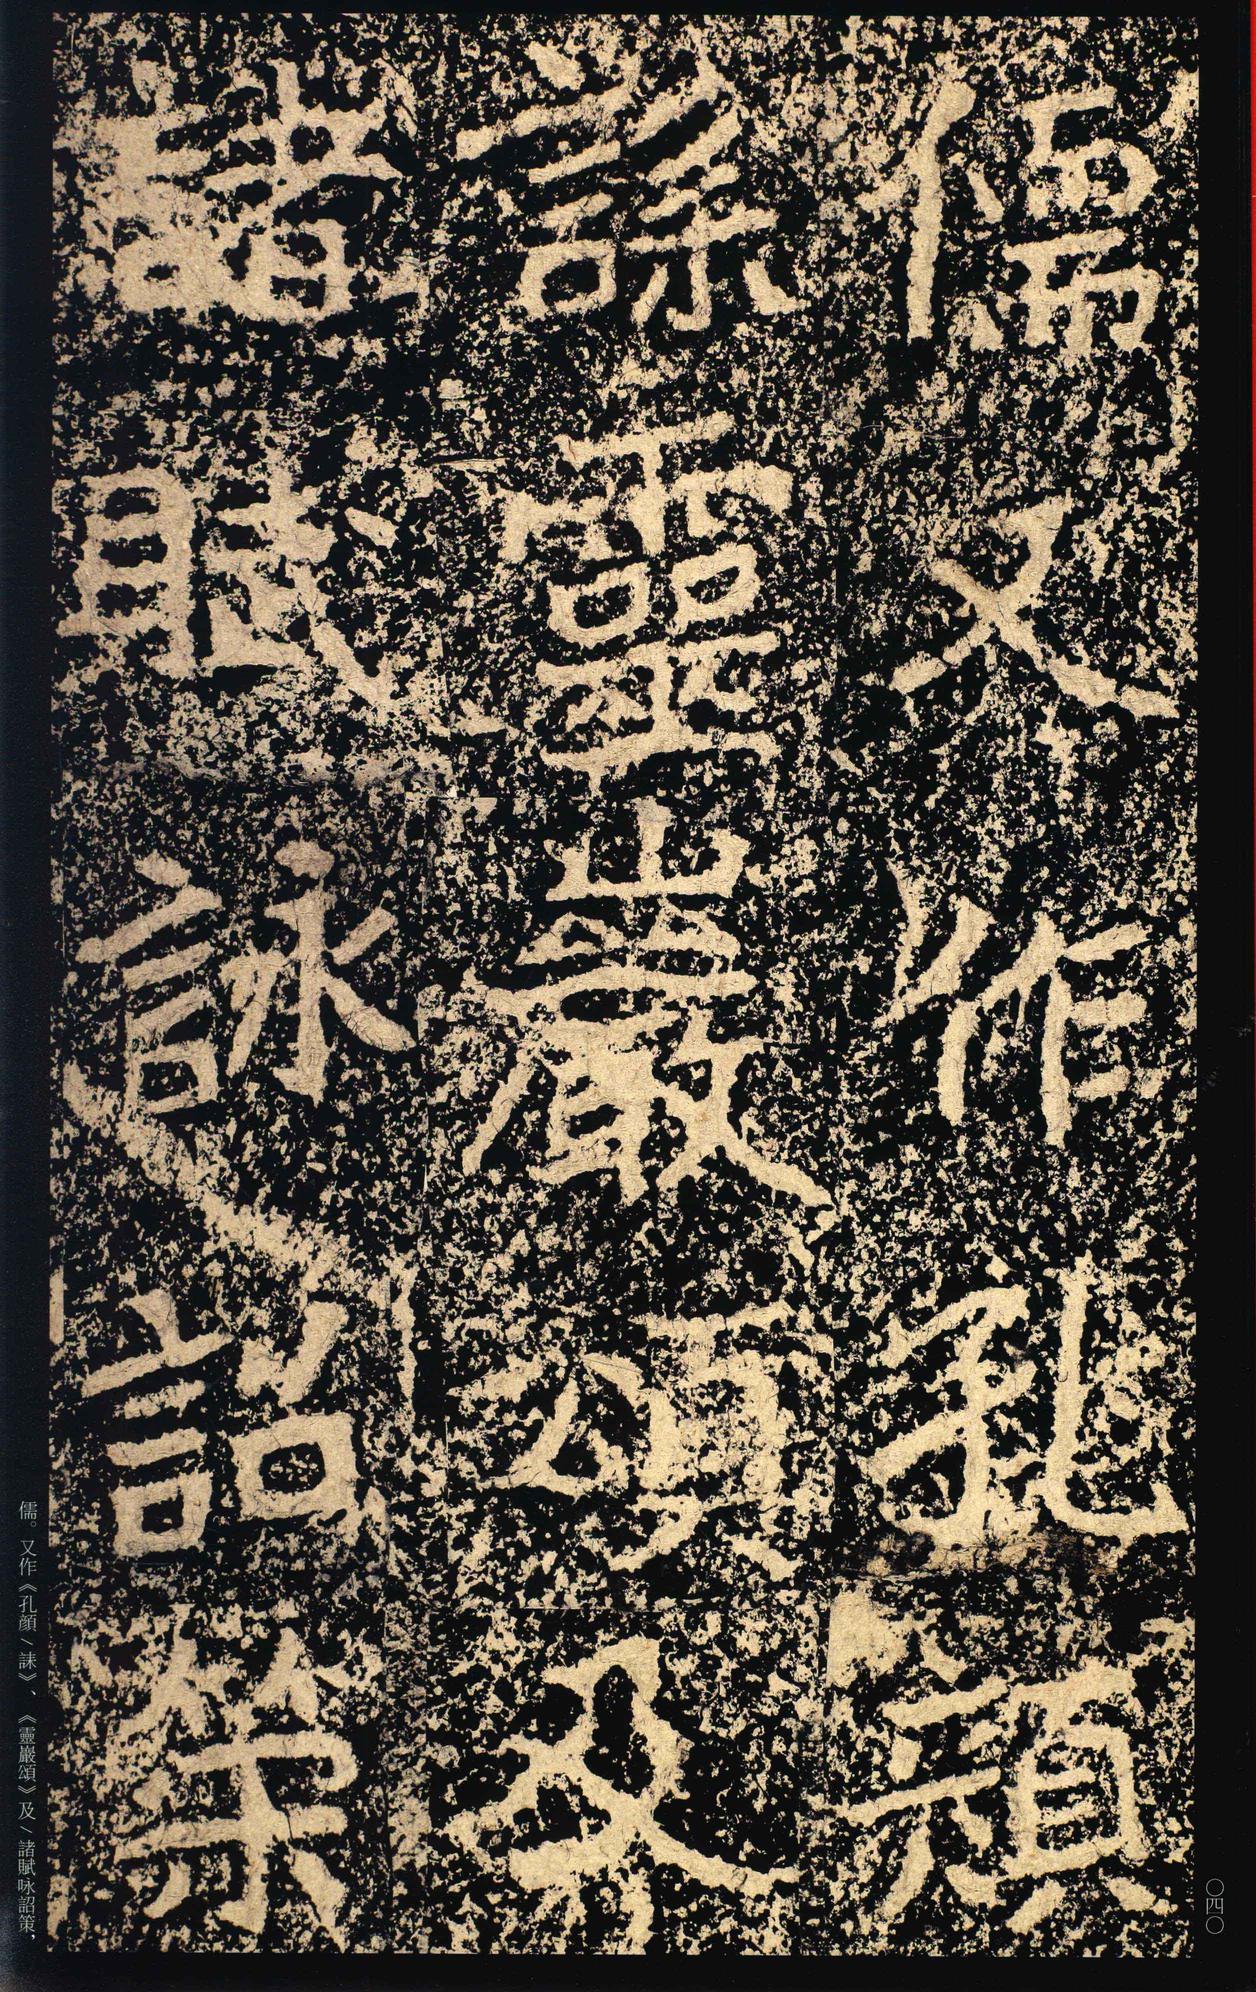 儒又作孔顔
誄靈巖頌及
諸賦詠詔策
儒。又作《孔顔／誄》、《靈巖頌》及／諸賦咏詔策，
〇四〇